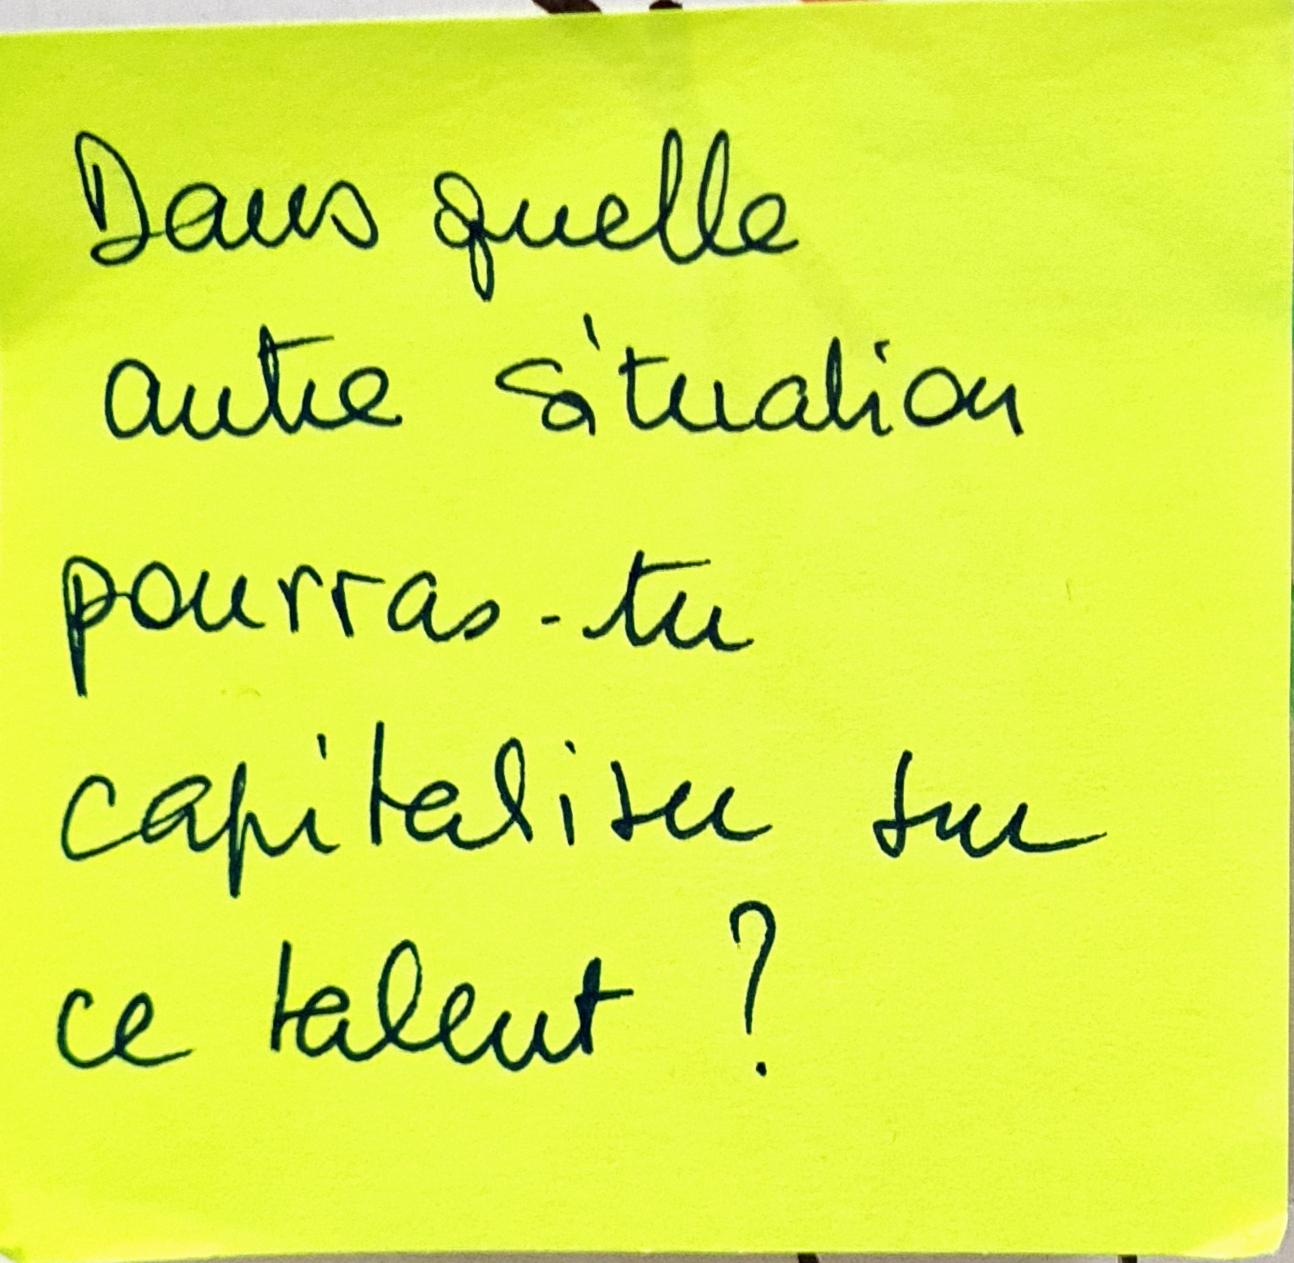 Dans quelle
autre situation
pourras-tu
capitaliser sur
ce talent ?